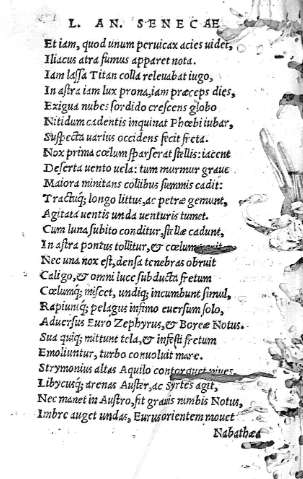 L. AN. SENECAE
Et iam, quod unum peruicax acies uidet,
Iliacus atra fumus apparet nota.
Iam lassa Titan colla releuabat iugo,
In astra iam lux prona, iam præceps dies,
Exigua nubes sordido crescens globo
Nitidum cadentis inquinat Phœbi iubar,
Suspecta uarius occidens fecit freta.
Nox prima cœlum sparserat stellis: iacent
Deserta uento uela: tum murmur graue
Maiora minitans collibus summis cadit:
Tractuq; longo littus, ac petræ gemunt,
Agitata uentis unda uenturis tumet.
Cum luna subito conditur, stellæ cadunt,
In astra pontus tollitur, & cœlum
Nec una nox est, densa tenebras obruit
Caligo, & omni luce subducta fretum
Cœlumq; miscet, undiq; incumbunt simul,
Rapiuntq; pelagus infimo euersum solo,
Aduersus Euro Zephyrus, & Boreæ Notus.
Sua quiq; mittunt tela, & infesti fretum
Emoliuntur, turbo conuoluit mare.
Strymonius altas Aquilo contorquet niues,
Libycusq; arenas Auster, ac Syrtes agit,
Nec manet in Austro, fit grauis nimbis Notus,
Imbre auget undas, Eurus orientem mouet
Nabathæa